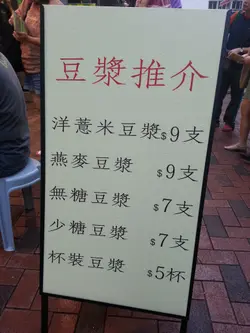 豆漿推介
洋薏米豆漿$9支
燕麥豆漿 $9支
無糖豆漿 $7支
少糖豆漿 $7支
杯裝豆漿 $5杯